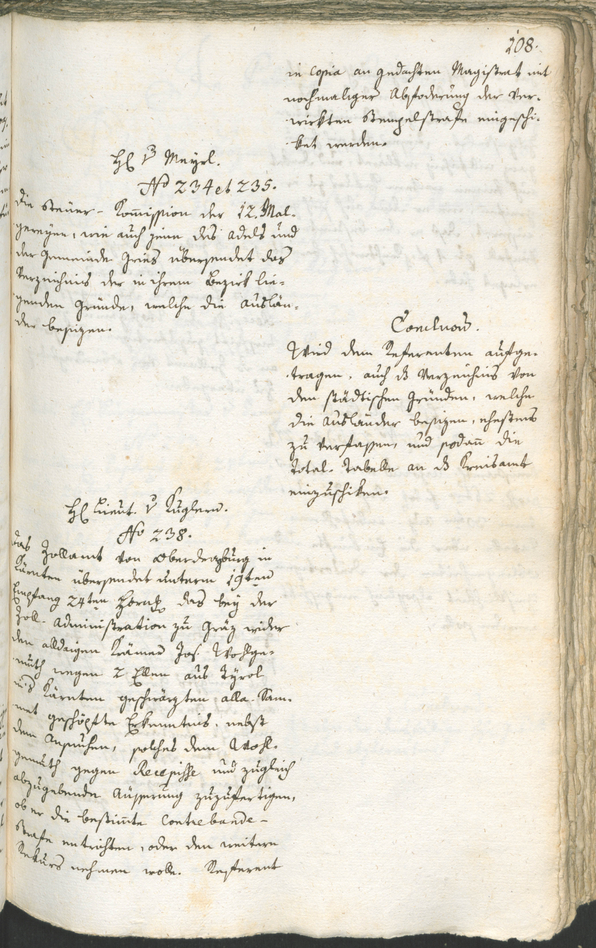 208.
in Copia an gedachten Magistrat mit
nochmaliger Abfoderung der ver-
wirkten Stempelstrafe eingeschi-
ket werden.
H. v. Mayrl.
No 234 et 235.
die Steuer-Kommission der 12. Mal-
gereyen, wie auch jene des Adels und
der Gemeinde Gries übersendet das
Verzeichnis der in ihrem Bezirk lie-
genden Gründe, welche die Auslän-
der besizen.
Conclusum.
Wird dem Referenten aufge-
tragen, auch das Verzeichnis von
den städtischen Gründen, welche
die Ausländer besizen, ehestens
zu verfassen, und sodann die
Total-Tabelle an das Kreisamt
einzuschiken.
H. Lieut. v. Kuglern.
No 238.
das Zollamt von Oberdrauburg in
Kärnten übersendet unterm 19ten
Empfang 24ten Hornung das bey der
Zoll-Administration zu Gräz wider
den alldaigen Krämer Jos. Wohlge-
muth wegen 2 Ellen aus Tyrol
nach Kärnten geschwärzten alla Sam-
met geschöpfte Erkenntnis, nebst
dem Ansuchen, solches dem Wohl-
gemuth gegen Recepisse und zugleich
abzugebende Äusserung zuzufertigen,
ob er die bestimte Contrebande-
Strafe entrichten, oder den weitern
Rekurs nehmen wolle. Referent